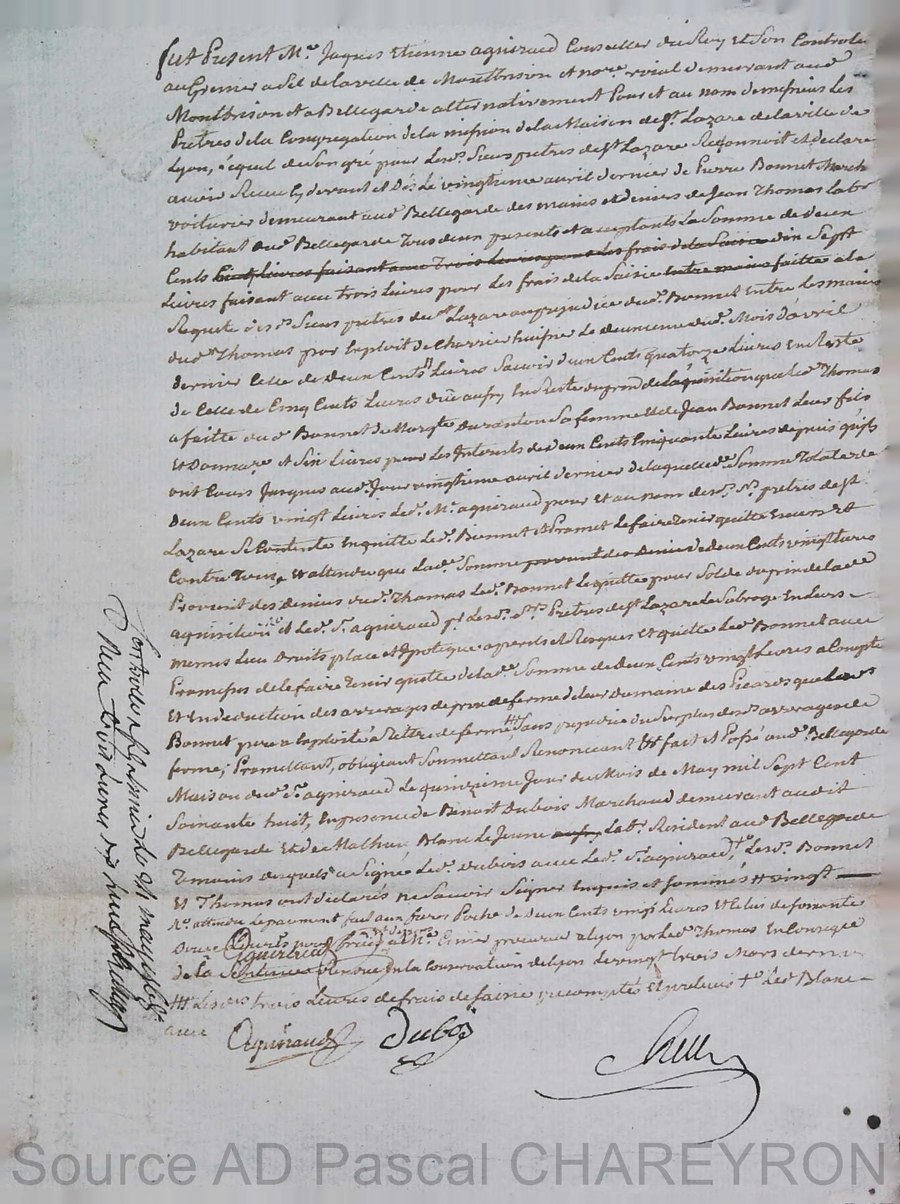 fut Present Me. Jaques Etienne aguiraud Conseiller du Roy Et Son Controle
au Grenier a Sel de la ville de Montbrison et nore. roial demeurant aud
Montbrison et a Bellegarde alternativement Pour et au nom de messieurs Les
Prêtres de la Congregation de la mission de la Maison de st. Lazare de la ville de
Lyon, lequel de Son gré pour Lesd. Sieurs prêtres de st. Lazare Reconnoit et declare
avoir Receu Cy devant et dès Le vingtieme avril dernier de Pierre Bonnet March
voiturier demeurant aud. Bellegarde des mains et deniers de Jean Thomas labr
habitant aud. Bellegarde Tous deux presents et acceptants La Somme de deux
Cents livres faisant avec Trois Livres pour Les frais de la Saisie dix Sept
Livres faisant avec trois Livres pour Les frais de la Saisie faitte a la
Requete desd. Sieurs prêtres de st. Lazare au prejudice dud. Bonnet Entre Les mains
dud. Thomas par Exploit de Charrier huissier Le deuxieme du d. Mois d'avril
dernier Celle de Deux Cents Livres Savoir deux Cents quatorze Livres En Reste
de Celle de Cinq Cents Livres En Reste du prix de L'aquisition que led. Thomas
a faitte dud. Bonnet de Margte. Duranton Sa femme et de Jean Bonnet Leur fils
Et Six Livres pour Les Interets de deux Cents Cinquante Livres depuis qu'ils
ont Cours Jusques aud. Jour vingtieme avril dernier de laquelle d. Somme Totale de
deux Cents vingt Livres Led. Me. aguiraud pour Et au nom desd. Srs. prêtres de st
Lazare Se Contente En quitte Led. Bonnet Et Promet Le faire Tenir quitte Envers Et
Contre Tous, Et attendu que Lad. Somme de deux Cents vingt Livres
Provient des deniers dud. Thomas Led. Bonnet Le quitte pour Solde du prix de lad.
aquisition et Led. Sr. aguiraud pr. Lesd. Srs. Prêtres de st Lazare Le Subroge En Leurs
memes Lieu Droits place et Ipoteque a perils et Risques Et quitte Led. Bonnet avec
Promesses de le faire Tenir quitte de lad. Somme de Deux Cents vingt Livres a Compte
Et En deduction des arrerages de prix de ferme de leur domaine des Picards que
Bonnet pere a Exploité a Titre de ferme Sans prejudice du Surplus desd. arrerages de
ferme; Promettant, obligeant Soumettant Renoncant &a fait et Passé aud. Bellegarde
Maison dud. Sr. aguiraud Le quinzieme Jour du Mois de May mil Sept Cent
Soixante huit, En presence de Benoit Dubois Marchand demeurant audit
Bellegarde Et de Mathieu Blanc Le Jeune labr. Resident aud Bellegarde
Temoins desquels a Signé Led. Dubois avec Led. Sr. aguiraud, Lesd. Bonnet
Et Thomas ont déclarés ne Savoir Signer Enquis et Sommés # vingt
attendu Le paiement fait aux freres de deux Cents vingt Livres Et Celui de Soixante
Douze Livres pour frais
de la Sentence Rendue En la Conservation de Lyon Le vingt trois Mars dernier
# Lesd. trois Livres de frais de saisie compte Led. Blanc
avec Aguiraud Dubois
Controllé a St Galmier le 21 may 1768
Receu trois Livres dix neuf sols
Source AD Pascal CHAREYRON